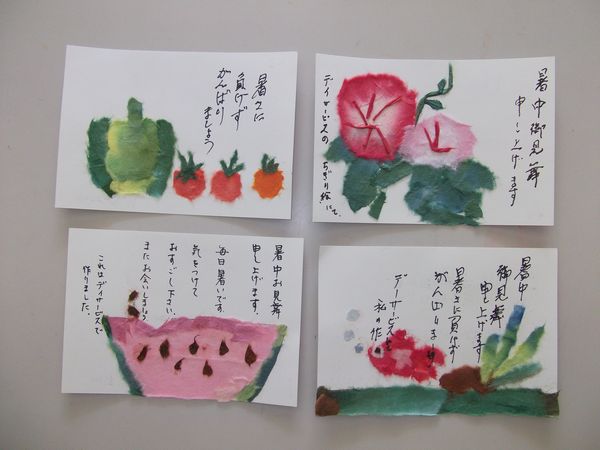 暑さに
負けず
がんばり
ましょう
暑中御見舞
申し上げます
デイサービスの
ちぎり絵にて。
暑中お見舞
申し上げます。
毎日暑いです。
気をつけて
おすごし下さい。
またお会いしましょう
これはデイサービスで
作りました。
暑中
御見舞
申し上げます
暑さに負けず
がんばりましょう
デーサービスで
私の作